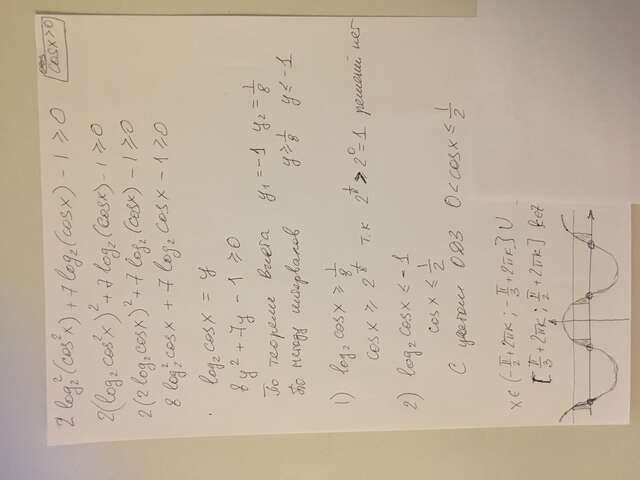 2 log₂²(cos²x) + 7 log₂(cosx) - 1 ≥ 0
cosx>0
2(log₂ cos²x)² + 7 log₂(cosx) - 1 ≥ 0
2(2 log₂ cosx)² + 7 log₂(cosx) - 1 ≥ 0
8 log₂² cosx + 7 log₂ cosx - 1 ≥ 0
log₂ cosx = y
8y² + 7y - 1 ≥ 0
По теореме Виета y₁ = -1 y₂ = 1/8
По методу интервалов y ≥ 1/8 y ≤ -1
1) log₂ cosx ≥ 1/8
cosx ≥ 2^(1/8) т.к 2^(1/8) > 2⁰ = 1 решений нет
2) log₂ cosx ≤ -1
cosx ≤ 1/2
С учетом ОДЗ 0 < cosx ≤ 1/2
x ∈ (-π/2 + 2πk ; -π/3 + 2πk] U
[π/3 + 2πk ; π/2 + 2πk] k∈Z